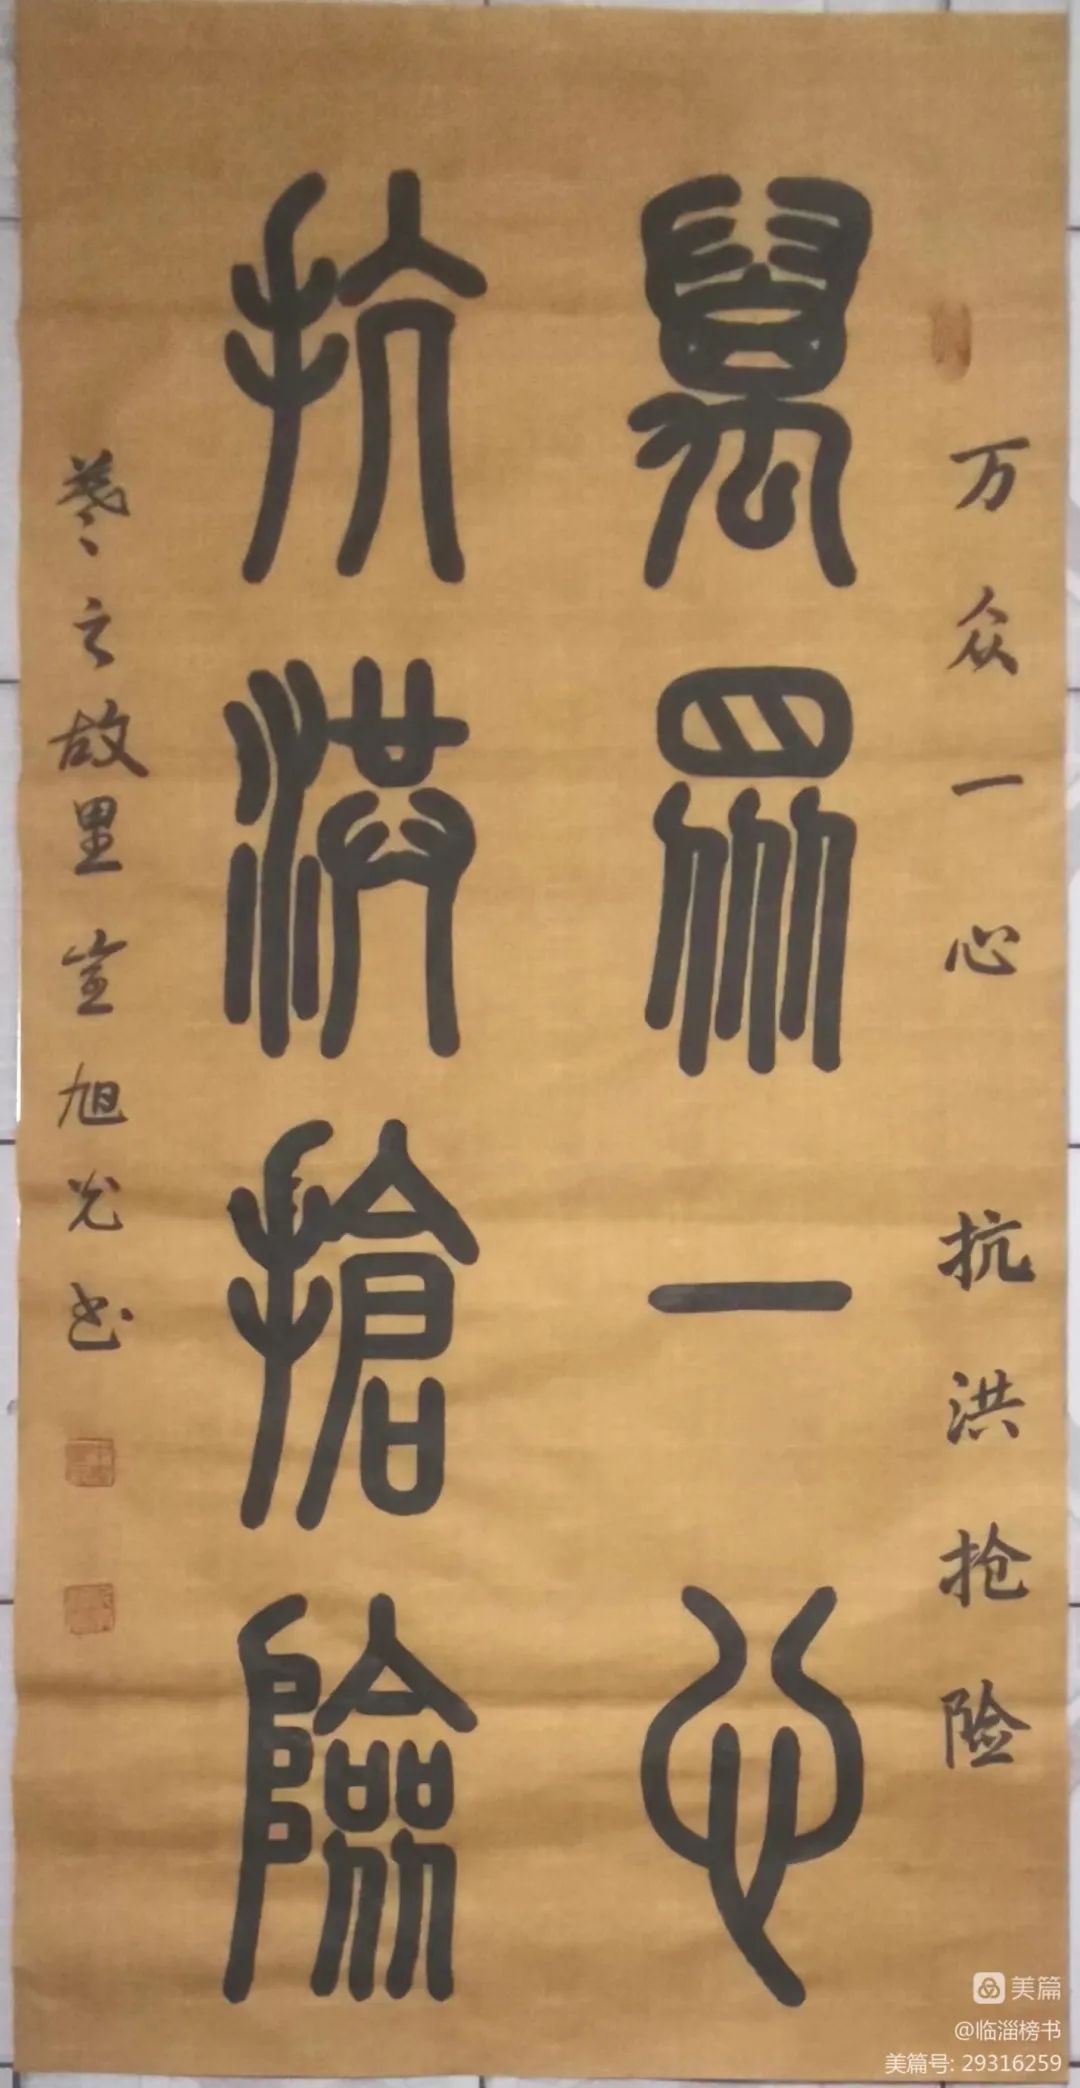 万众一心 抗洪抢险
萬眾一心
抗洪搶險
羲之故里崔旭光书
美篇
@临淄榜书
美篇号: 29316259